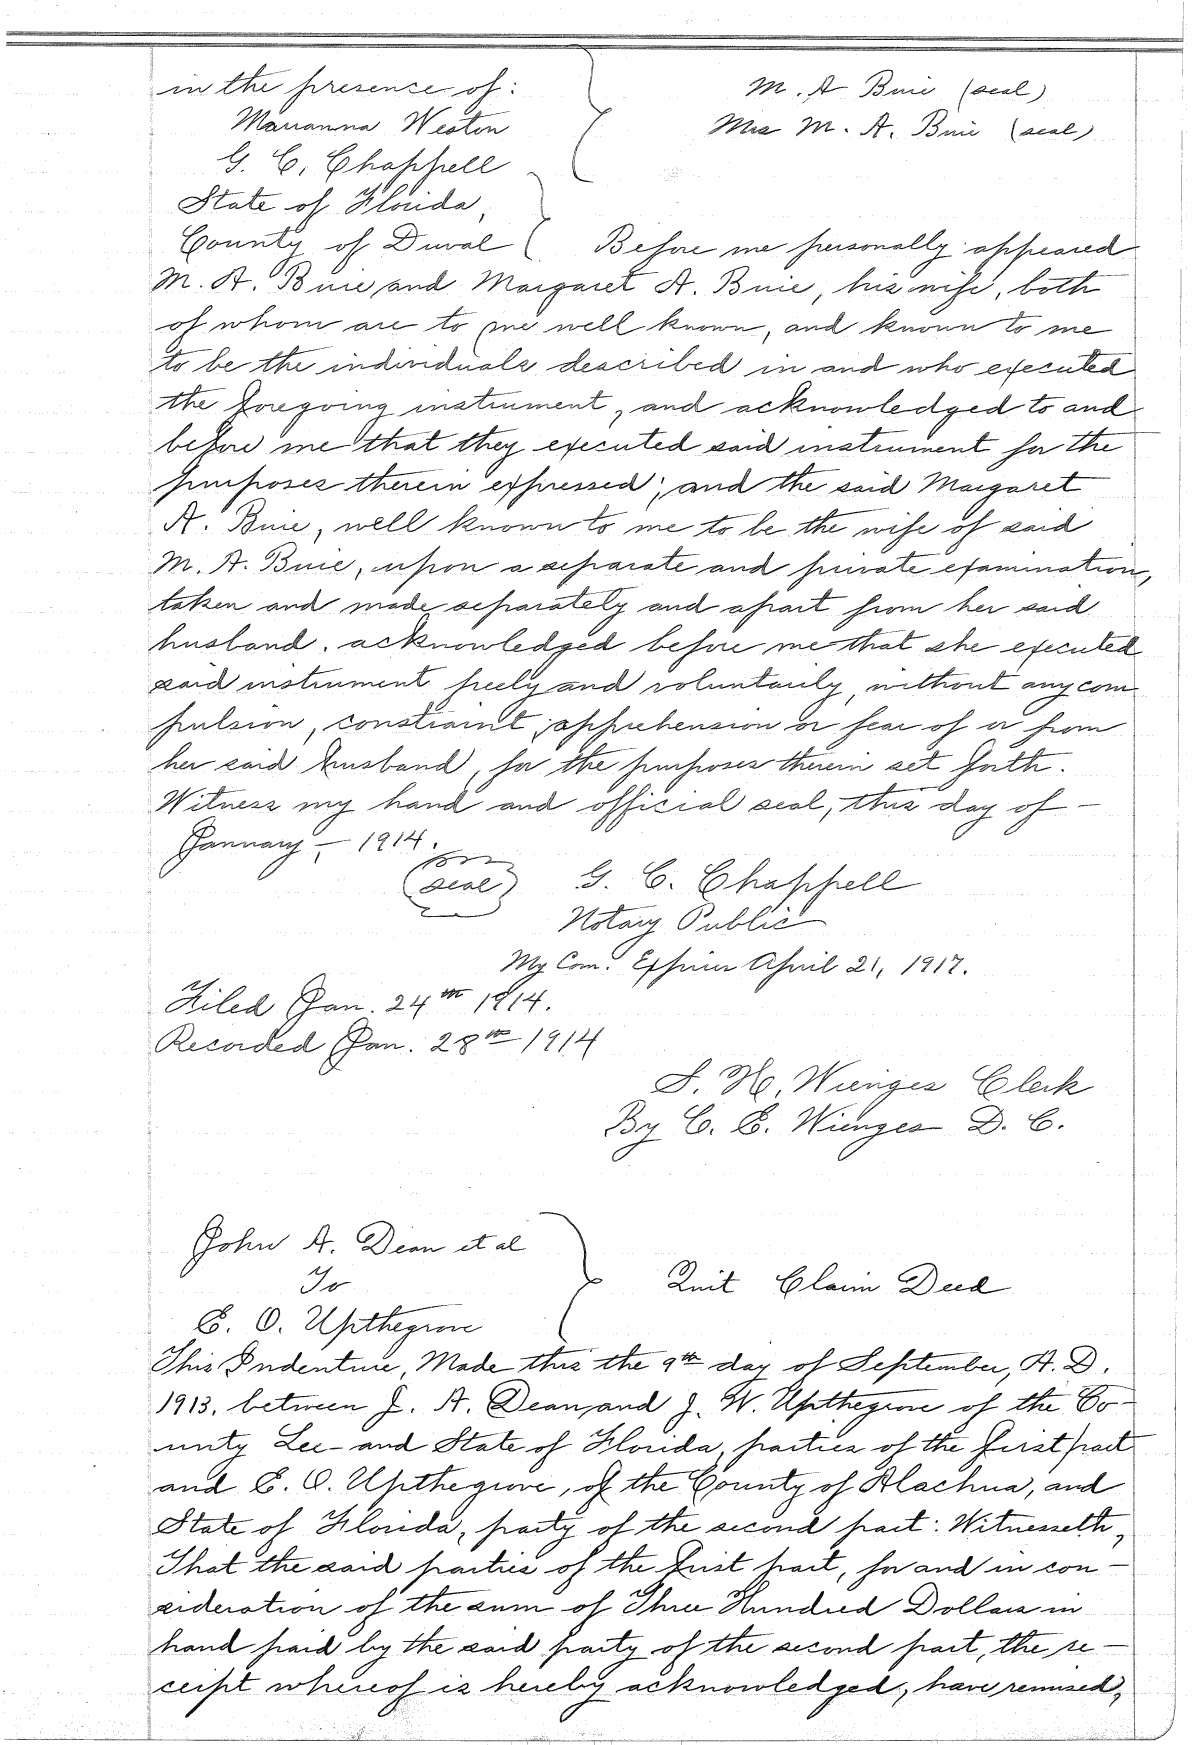 in the presence of: M. A Buie (seal)
Marianna Weston Mrs M. A. Buie (seal)
G. C. Chappell
State of Florida,
County of Duval Before me personally appeared
M. A. Buie and Margaret A. Buie, his wife, both
of whom are to me well known, and known to me
to be the individuals described in and who executed
the foregoing instrument, and acknowledged to and
before me that they executed said instrument for the
purposes therein expressed; and the said Margaret
A. Buie, well known to me to be the wife of said
M. A. Buie, upon a separate and private examination,
taken and made separately and apart from her said
husband, acknowledged before me that she executed
said instrument freely and voluntarily, without any com
pulsion, constraint, apprehension or fear of or from
her said husband, for the purposes therein set forth.
Witness my hand and official seal, this day of -
January, - 1914.
(seal) G. C. Chappell
Notary Public
My Com. Expires April 21, 1917.
Filed Jan. 24th 1914.
Recorded Jan. 28th 1914
S. H. Wienges Clerk
By C. E. Wienges D. C.
John A. Dean et al
To Quit Claim Deed
E. O. Upthegrove
This Indenture, Made this the 9th day of September, A. D.
1913, between J. A. Dean, and J. W. Upthegrove of the Co-
unty Lee- and State of Florida, parties of the first part
and E. O. Upthegrove, of the County of Alachua, and
State of Florida, party of the second part: Witnesseth,
That the said parties of the first part, for and in con-
sideration of the sum of Three Hundred Dollars in
hand paid by the said party of the second part, the re-
ceipt whereof is hereby acknowledged, have remised,